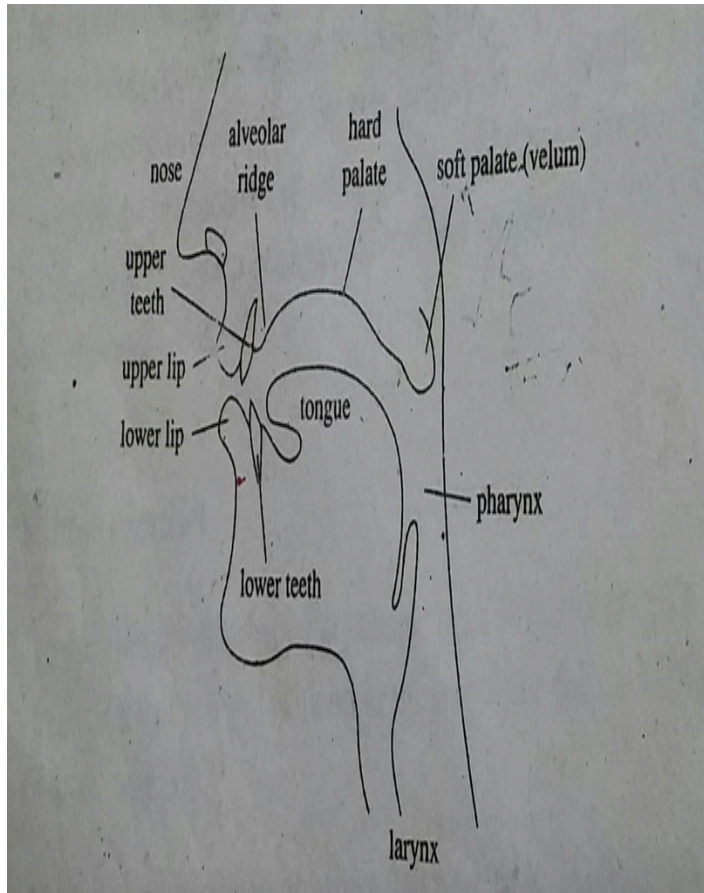 alveolar
ridge
hard
palate
soft palate.(velum)
nose
upper
teeth
upper lip
lower lip
tongue
pharynx
lower teeth
larynx